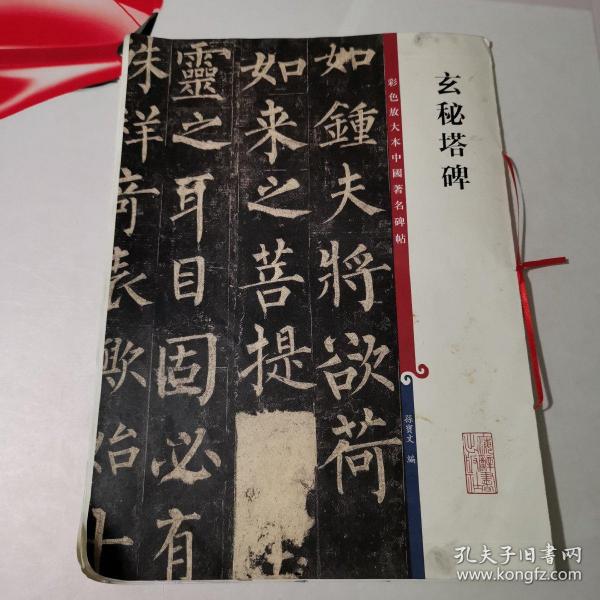 玄秘塔碑
彩色放大本中國著名碑帖
孫寶文 編
如鍾夫將欲荷
如来之菩提
靈之耳目固必有
殊祥奇表歟始十
孔夫子旧书网
www.kongfz.com